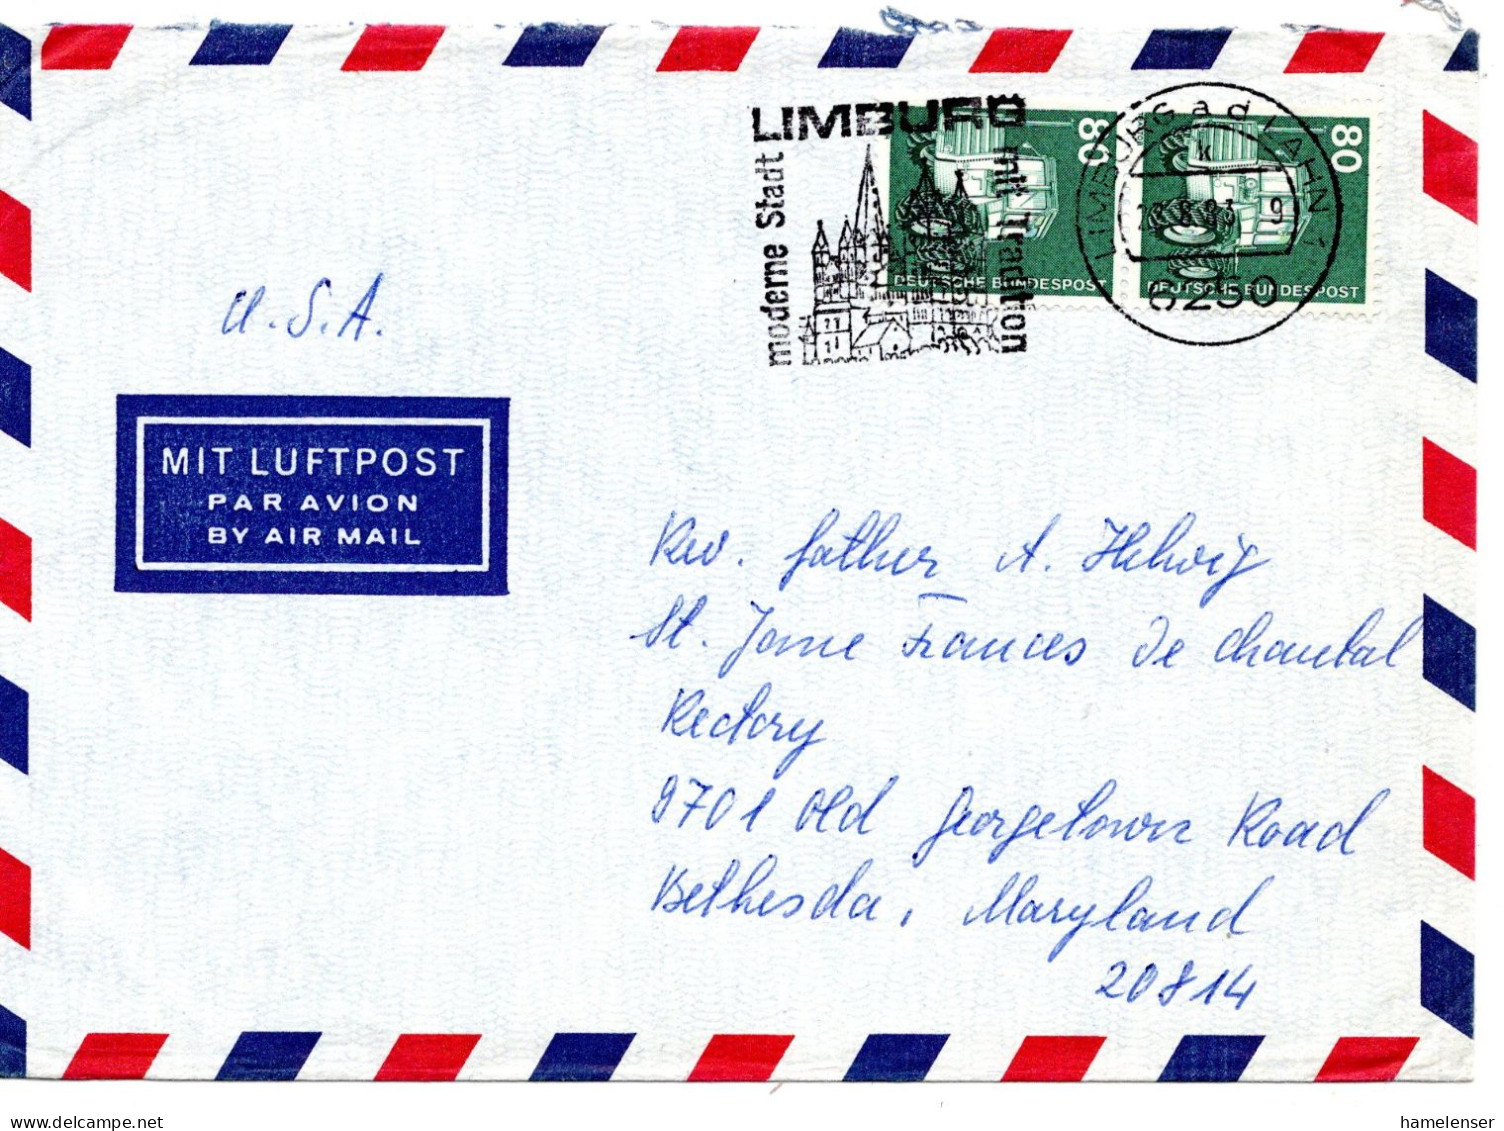 LIMBURG
moderne Stadt
mit Tradition
80
80
DEUTSCHE BUNDESPOST
DEUTSCHE BUNDESPOST
LIMBURG a d LAHN 1
k
8.83 9
6250
U.S.A.
MIT LUFTPOST
PAR AVION
BY AIR MAIL
Rev. Father A. Helwig
St. Jane Frances De Chantal
Rectory
9701 Old Georgetown Road
Bethesda, Maryland
20814
hamelenser